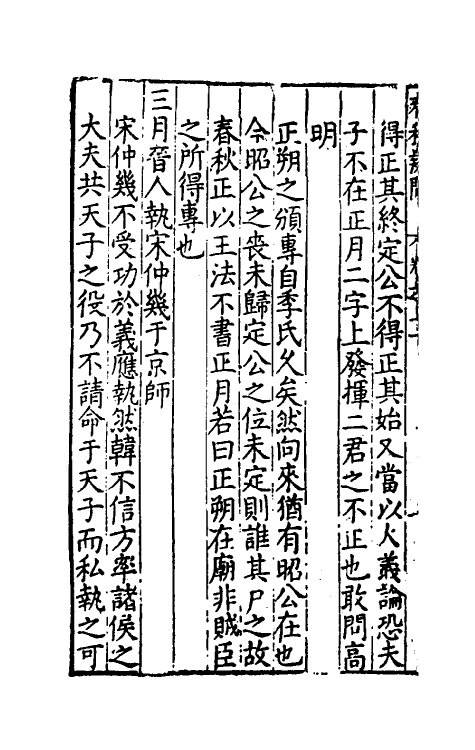 得正其終定公不得正其始又當以人義論恐夫
子不在正月二字上發揮二君之不正也敢問高
明
正朔之頒專自季氏久矣然向來猶有昭公在也
今昭公之喪未歸定公之位未定則誰其尸之故
春秋正以王法不書正月若曰正朔在廟非賊臣
之所得專也
三月晉人執宋仲幾于京師
宋仲幾不受功於義應執然韓不信方率諸侯之
大夫共天子之役乃不請命于天子而私執之可